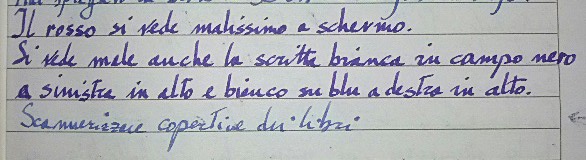 Il rosso si vede malissimo a schermo.
Si vede male anche la scritta bianca in campo nero
a sinistra in alto e bianco su blu a destra in alto.
Scannerizzare copertine dei libri